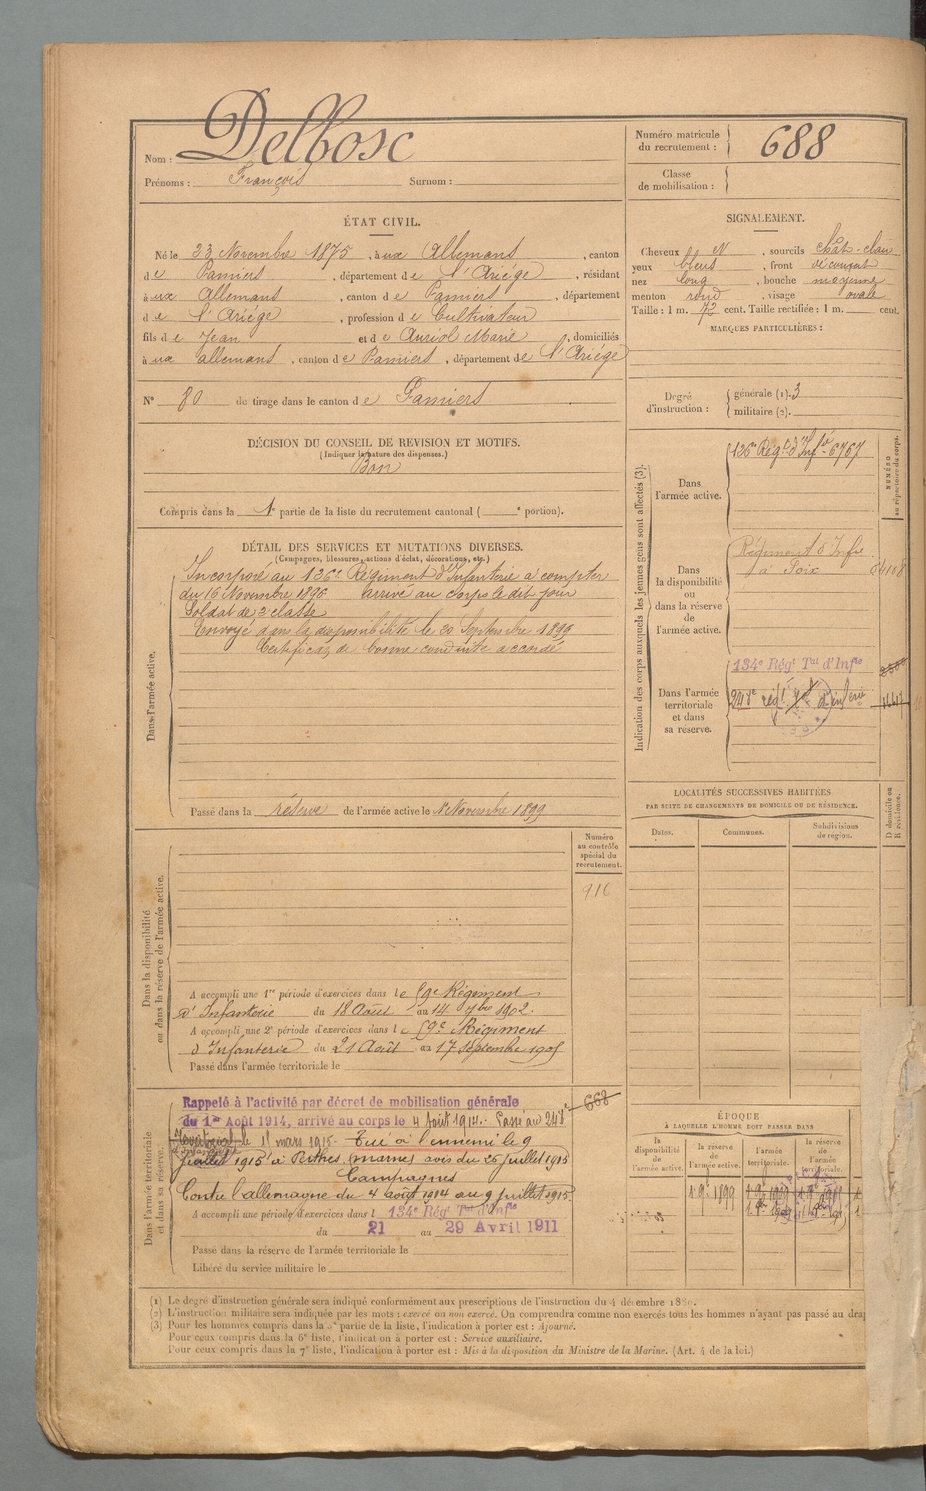 Nom : Delbosc
Prénoms : François Surnom :
Numéro matricule du recrutement : 688
Classe de mobilisation :
ÉTAT CIVIL.
Né le 23 Novembre 1875, à ux Allemans, canton
de Pamiers, département de l'Ariège, résidant
à ux Allemans, canton de Pamiers, département
de l'Ariège, profession de Cultivateur
fils de Jean et de Auriol Marie, domiciliés
à ux allemans, canton de Pamiers, département de l'Ariège
N° 80 de tirage dans le canton de Pamiers
SIGNALEMENT.
Cheveux et N, sourcils chât-clair
yeux bleus, front découvert
nez long, bouche moyenne
menton rond, visage ovale
Taille : 1 m. 72 cent. Taille rectifiée : 1 m. cent.
MARQUES PARTICULIÈRES :
Degré d'instruction : générale (1). 3
militaire (2).
DÉCISION DU CONSEIL DE REVISION ET MOTIFS.
(Indiquer la nature des dispenses.)
Bon
Compris dans la 1e partie de la liste du recrutement cantonal ( e portion).
DÉTAIL DES SERVICES ET MUTATIONS DIVERSES.
(Campagnes, blessures, actions d'éclat, décorations, etc.)
Dans l'armée active.
Incorporé au 126e Régiment d'Infanterie à compter
du 16 Novembre 1896 arrivé au corps le dit jour
Soldat de 2e classe
Envoyé dans la disponibilité le 20 Septembre 1899
Certificat de bonne conduite accordé
Passé dans la réserve de l'armée active le 1er Novembre 1899
Indication des corps auxquels les jeunes gens sont affectés (3).
NUMÉRO au répertoire du corps.
Dans l'armée active.
126e Régt d'Infie 6767
Dans la disponibilité ou dans la réserve de l'armée active.
Régiment d'Infie
à Foix
Dans l'armée territoriale et dans sa réserve.
134e Régt Tal d'Infie
248e régt d'infrie
LOCALITÉS SUCCESSIVES HABITÉES
PAR SUITE DE CHANGEMENTS DE DOMICILE OU DE RÉSIDENCE.
Dates. Communes. Subdivisions de région. D domicile ou R résidence.
Numéro au contrôle spécial du recrutement.
916
Dans la disponibilité ou dans la réserve de l'armée active.
A accompli une 1re période d'exercices dans le 59e Régiment
d'Infanterie du 18 Août au 14 7bre 1902.
A accompli une 2e période d'exercices dans le 59e Régiment
d'Infanterie du 21 Août au 17 Septembre 1905
Passé dans l'armée territoriale le
Dans l'armée territoriale et dans sa réserve.
Rappelé à l'activité par décret de mobilisation générale
du 1er Août 1914, arrivé au corps le 4 Août 1914. Passé au 248e
le 11 mars 1915 - Tué à l'ennemi le 9
juillet 1915 à (Marne) avis du 25 juillet 1915
Campagnes
Contre l'allemagne du 4 août 1914 au 9 juillet 1915
A accompli une période d'exercices dans l 134e Régt Tal d'Infie
du 21 au 29 Avril 1911
Passé dans la réserve de l'armée territoriale le
Libéré du service militaire le
668
ÉPOQUE
À LAQUELLE L'HOMME DOIT PASSER DANS
la disponibilité de l'armée active.
la réserve de l'armée active.
l'armée territoriale.
la réserve de l'armée territoriale.
1 9e 1899
(1) Le degré d'instruction générale sera indiqué conformément aux prescriptions de l'instruction du 4 décembre
(2) L'instruction militaire sera indiquée par les mots : exercé ou non exercé. On comprendra comme non exercés tous les hommes n'ayant pas passé au drap
(3) Pour les hommes compris dans la 5e partie de la liste, l'indication à porter est : Ajourné.
Pour ceux compris dans la 6e liste, l'indication à porter est : Service auxiliaire.
Pour ceux compris dans la 7e liste, l'indication à porter est : Mis à la disposition du Ministre de la Marine. (Art. 4 de la loi.)